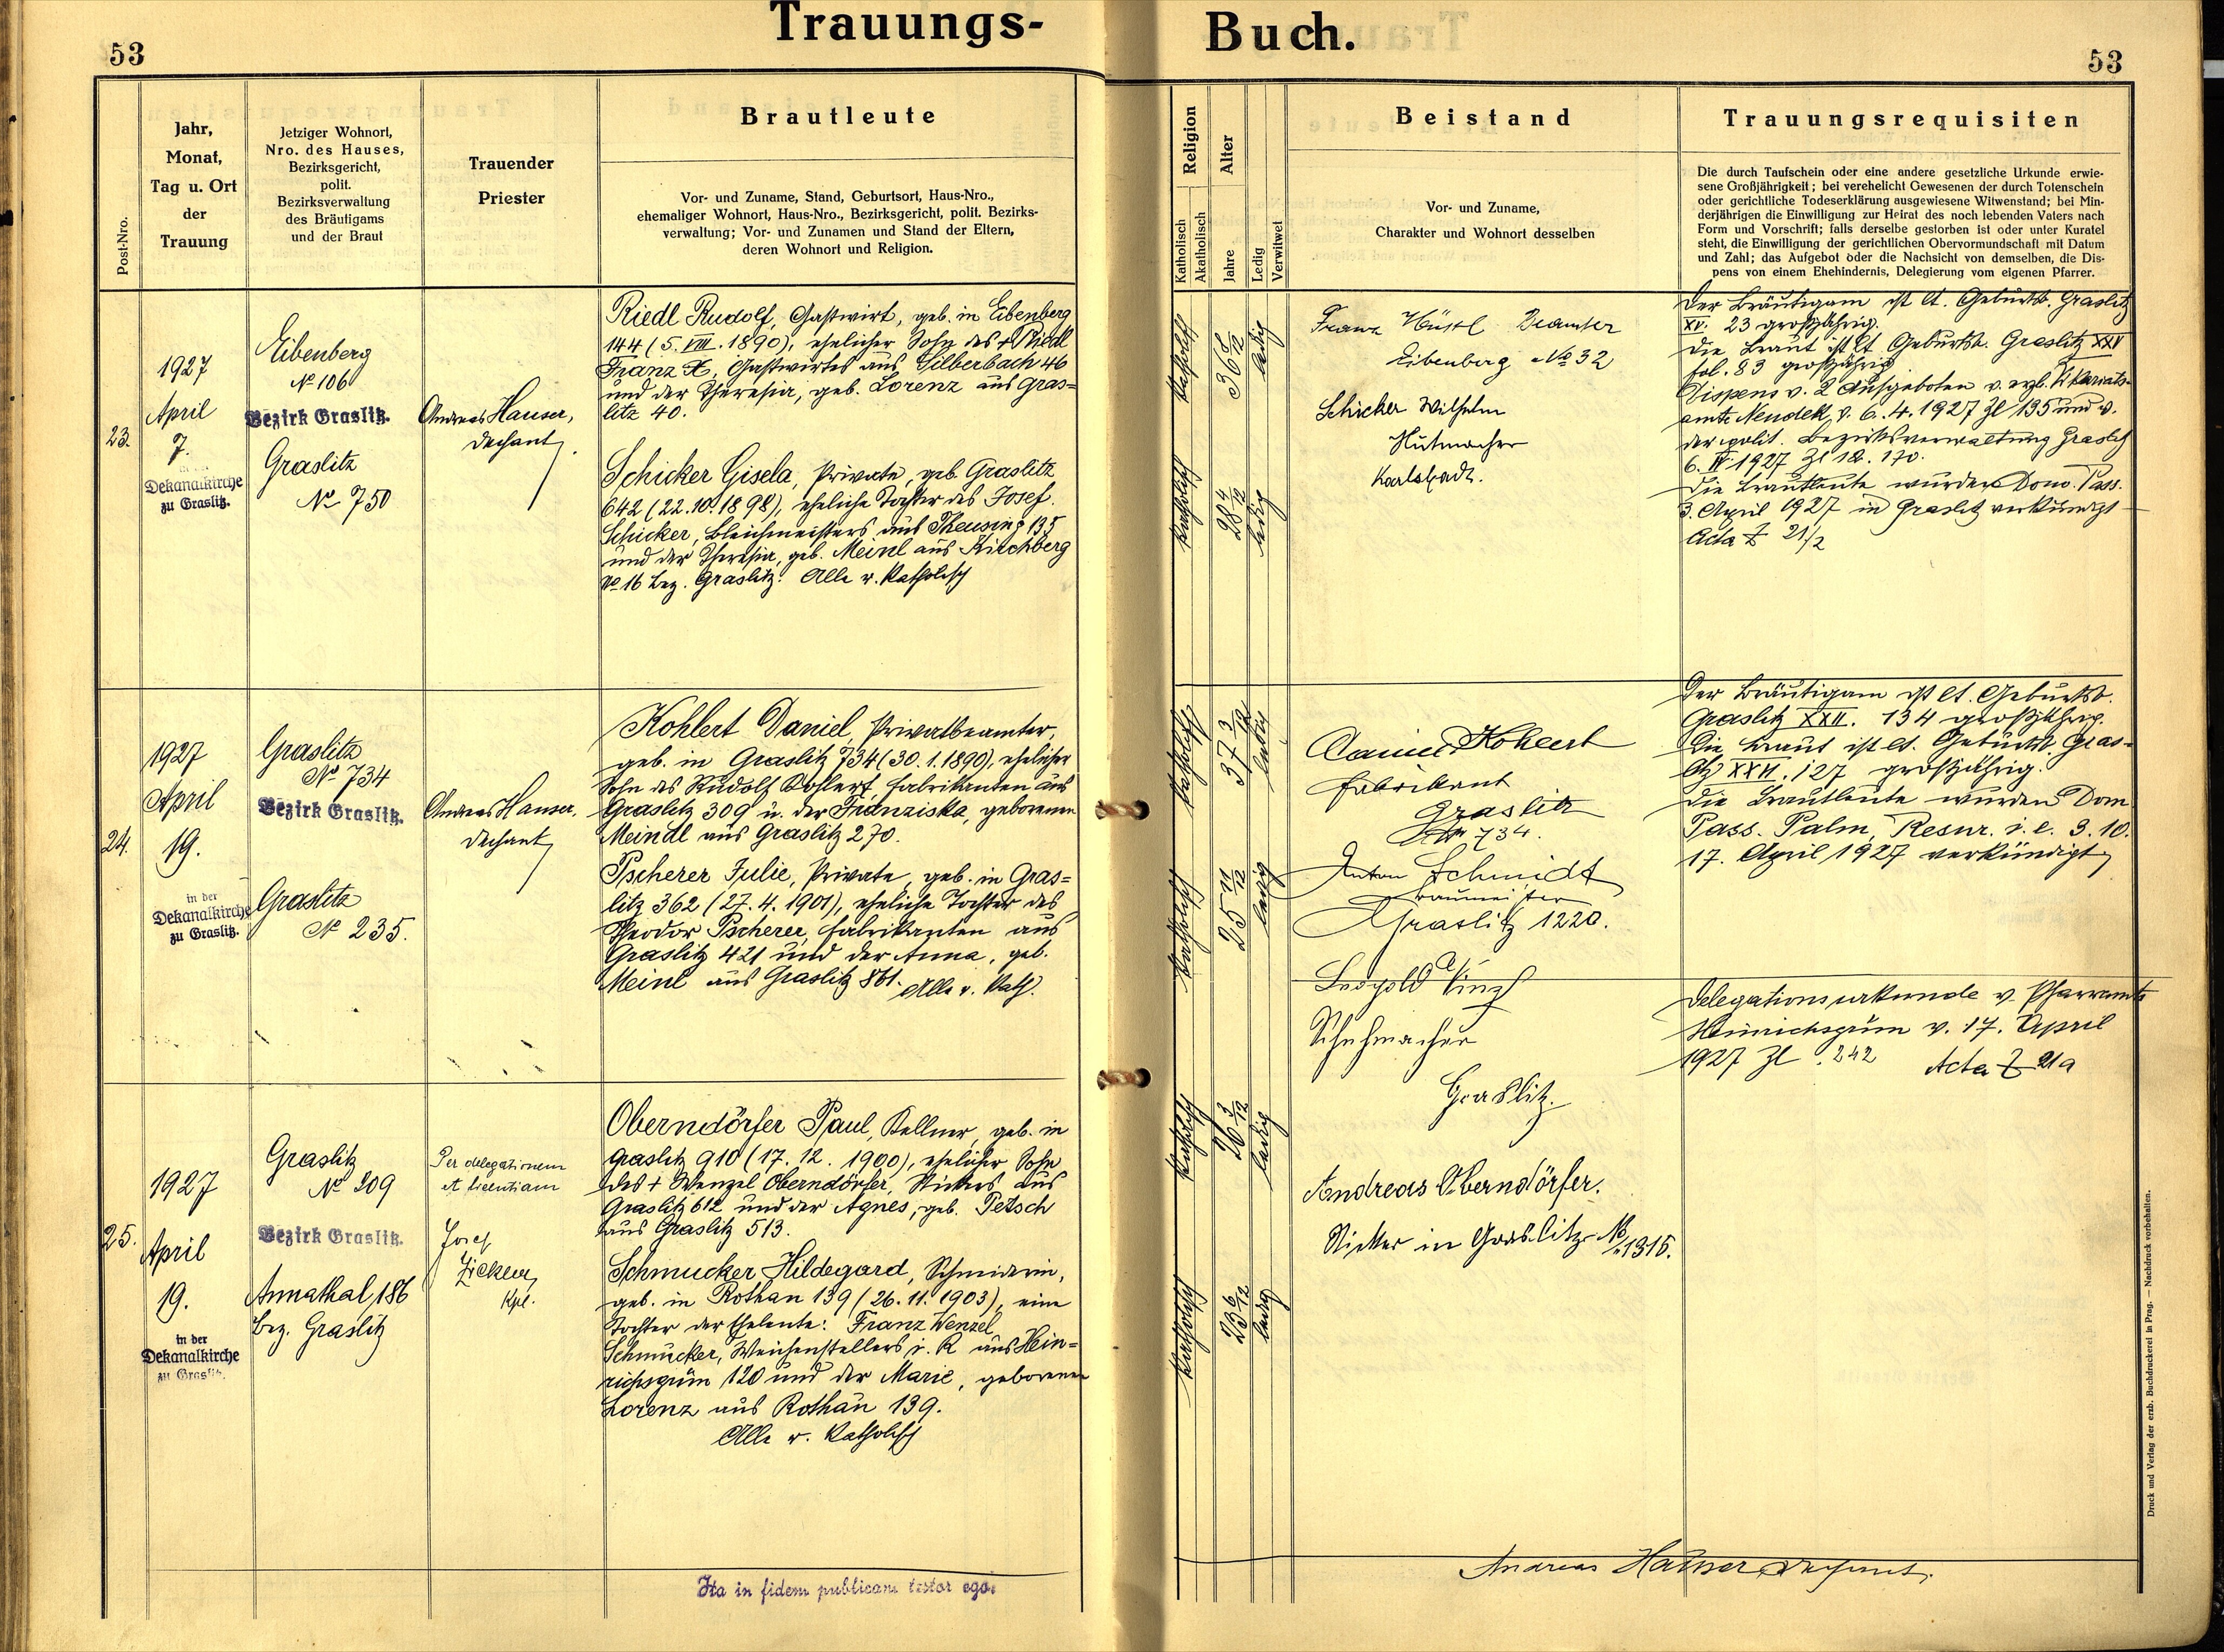 Trauungs-
53
Post-Nro.
Jahr,
Monat,
Tag u. Ort
der
Trauung
Jetziger Wohnort,
Nro. des Hauses,
Bezirksgericht,
polit.
Bezirksverwaltung
des Bräutigams
und der Braut
Trauender
Priester
Brautleute
Vor- und Zuname, Stand, Geburtsort, Haus-Nro.,
ehemaliger Wohnort, Haus-Nro., Bezirksgericht, polit. Bezirks-
verwaltung; Vor- und Zunamen und Stand der Eltern,
deren Wohnort und Religion.
23.
1927
April
7.
Dekanalkirche
zu Graslitz.
Eibenberg
No 106
Bezirk Graslitz.
Graslitz
No 750
Andreas Hauser,
Dechant
Riedl Rudolf, Gastwirt, geb. in Eibenberg
144 (5. VIII. 1890), ehelicher Sohn des + Riedl
Franz, Gastwirtes aus Silberbach 46
und der Theresia, geb. Lorenz aus Gras=
litz 40.
Schicker Gisela, Private, geb. Graslitz
642 (22.10.1898), eheliche Tochter des Josef
Schicker, Bleichmeisters aus Theusing 135
und der Theresia, geb. Meinl aus Kirchberg
No 16 Bez. Graslitz. Alle r. katholisch
24.
1927
April
19.
in der
Dekanalkirche
zu Graslitz.
Graslitz
No 734
Bezirk Graslitz.
Graslitz
No 235.
Andreas Hauser,
Dechant
Kohlert Daniel, Privatbeamter,
geb. in Graslitz 734 (30.1.1890), ehelicher
Sohn des Rudolf Kohlert, Fabrikanten aus
Graslitz 309 u. der Franziska, geborenen
Meindl aus Graslitz 270.
Pscherer Julie, Private, geb. in Gras=
litz 362 (27.4.1901), eheliche Tochter des
Theodor Pscherer, Fabrikanten aus
Graslitz 421 und der Anna, geb.
Meinl aus Graslitz 861. Alle r. kath.
25.
1927
April
19.
in der
Dekanalkirche
zu Graslitz.
Graslitz
No 209
Bezirk Graslitz.
Annathal 186
Bez. Graslitz
Per delegationem
et licentiam
Josef
Kpl.
Oberndörfer Paul, Kellner, geb. in
Graslitz 910 (17.12.1900), ehelicher Sohn
des + Wenzel Oberndörfer, Stickers aus
Graslitz 612 und der Agnes, geb. Petsch
aus Graslitz 513.
Schmucker Hildegard, Schneiderin,
geb. in Rothau 139 (26.11.1903), eine
Tochter der Eheleute: Franz Wenzel
Schmucker, Weichenstellers i. R. aus Hein=
richsgrün 120 und der Marie, geborenen
Lorenz aus Rothau 139.
Alle r. katholisch
Ita in fidem publicam testor ego:
Buch.
53
Religion
Katholisch
Akatholisch
Alter
Jahre
Ledig
Verwitwet
Beistand
Vor- und Zuname,
Charakter und Wohnort desselben
Trauungsrequisiten
Die durch Taufschein oder eine andere gesetzliche Urkunde erwie-
sene Großjährigkeit; bei verehelicht Gewesenen der durch Totenschein
oder gerichtliche Todeserklärung ausgewiesene Witwenstand; bei Min-
derjährigen die Einwilligung zur Heirat des noch lebenden Vaters nach
Form und Vorschrift; falls derselbe gestorben ist oder unter Kuratel
steht, die Einwilligung der gerichtlichen Obervormundschaft mit Datum
und Zahl; das Aufgebot oder die Nachsicht von demselben, die Dis-
pens von einem Ehehindernis, Delegierung vom eigenen Pfarrer.
katholisch
36 8/12
ledig
katholisch
28 4/12
ledig
Franz Beamter
Eibenberg No 32
Schicker Wilhelm
Hutmacher
Karlsbad.
Der Bräutigam ist lt. Geburtsb. Graslitz
XV. 23 großjährig.
Die Braut ist lt. Geburtsb. Graslitz XXV
fol. 83 großjährig
Dispens v. 2 Aufgeboten v. erzb. Vikariats-
amte Neudek v. 6.4.1927 Zl 135 und v.
der polit. Bezirksverwaltung Graslitz
6. IV. 1927 Zl 18.170.
Die Brautleute wurden Dom. Pass.
3. April 1927 in Graslitz verkündigt
Acta Z 21/2
katholisch
37 3/12
ledig
katholisch
25 11/12
ledig
Daniel Kohlert
Fabrikant
Graslitz
734.
Anton Schmidt
Baumeister
Graslitz 1220.
Der Bräutigam ist lt. Geburtsb.
Graslitz XXII. 134 großjährig.
Die Braut ist lt. Geburtsb. Gras=
litz XXVI. 127 großjährig.
Die Brautleute wurden Dom.
Pass. Palm, Resur. i. e. 3. 10.
17. April 1927 verkündigt
katholisch
26 3/12
ledig
katholisch
23 6/12
ledig
Leopold
Schuhmacher
Graslitz.
Andreas Oberndörfer.
Sticker in Graslitz No 1315.
Delegationsurkunde v. Pfarramte
Heinrichsgrün v. 17. April
1927 Zl. 242 Acta Z 21a
Andreas Hauser Dechant.
Druck und Verlag der erzb. Buchdruckerei in Prag. — Nachdruck vorbehalten.